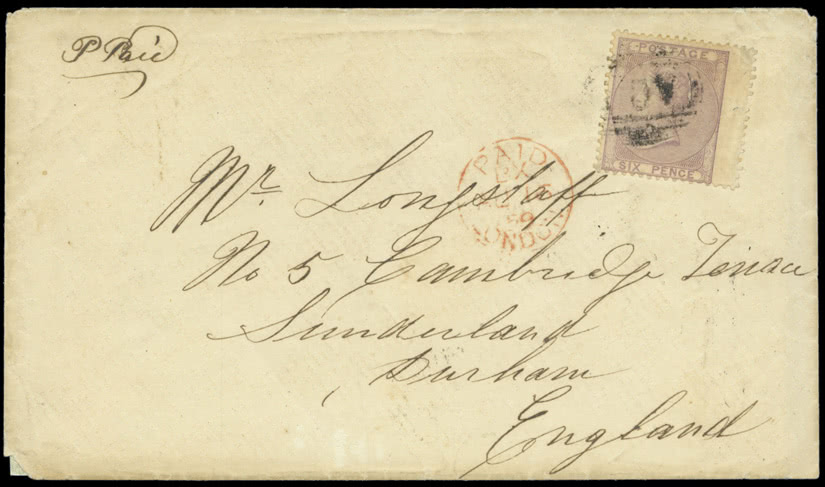 P Paid
POSTAGE
SIX PENCE
PAID
LONDON
Mr. Longstaff
No 5 Cambridge Terrace
Sunderland
Durham
England